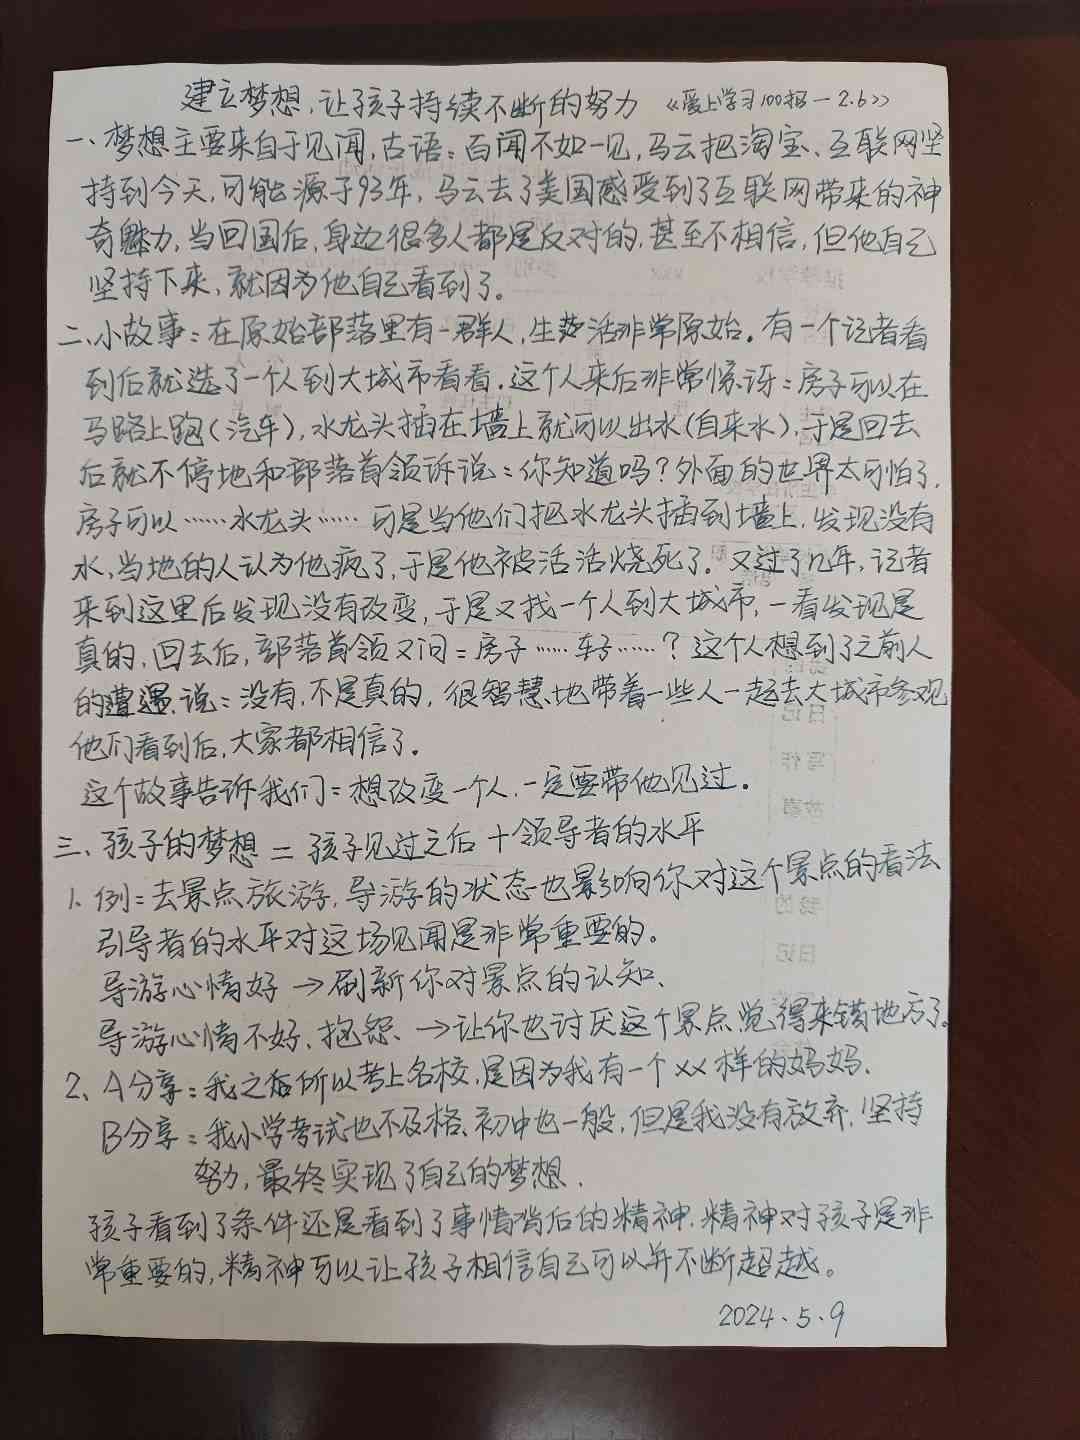 建立梦想，让孩子持续不断的努力 《爱上学习100招—2.6》
一、梦想主要来自于见闻，古语：百闻不如一见，马云把淘宝、互联网坚
持到今天，可能源于93年，马云去了美国感受到了互联网带来的神
奇魅力，当回国后，身边很多人都是反对的，甚至不相信，但他自己
坚持下来，就因为他自己看到了。
二、小故事：在原始部落里有一群人，生活非常原始。有一个记者看
到后就选了一个人到大城市看看。这个人来后非常惊讶：房子可以在
马路上跑（汽车），水龙头插在墙上就可以出水（自来水），于是回去
后就不停地和部落首领诉说：你知道吗？外面的世界太可怕了，
房子可以……水龙头……可是当他们把水龙头插到墙上，发现没有
水，当地的人认为他疯了，于是他被活活烧死了。又过了几年，记者
来到这里后发现没有改变，于是又找一个人到大城市，一看发现是
真的，回去后，部落首领又问：房子……车子……？这个人想到了之前人
的遭遇，说：没有，不是真的，很智慧地带着一些人一起去大城市参观
他们看到后，大家都相信了。
这个故事告诉我们：想改变一个人，一定要带他见过。
三、孩子的梦想 = 孩子见过之后 + 领导者的水平
1、例：去景点旅游，导游的状态也影响你对这个景点的看法
引导者的水平对这场见闻是非常重要的。
导游心情好 → 刷新你对景点的认知、
导游心情不好、抱怨、→让你也讨厌这个景点，觉得来错地方了。
2、A分享：我之后所以考上名校，是因为我有一个xx样的妈妈、
B分享：我小学考试也不及格、初中也一般，但是我没有放弃，坚持
努力，最终实现了自己的梦想、
孩子看到了条件还是看到了事情背后的精神，精神对孩子是非
常重要的，精神可以让孩子相信自己可以并不断超越。
2024、5、9